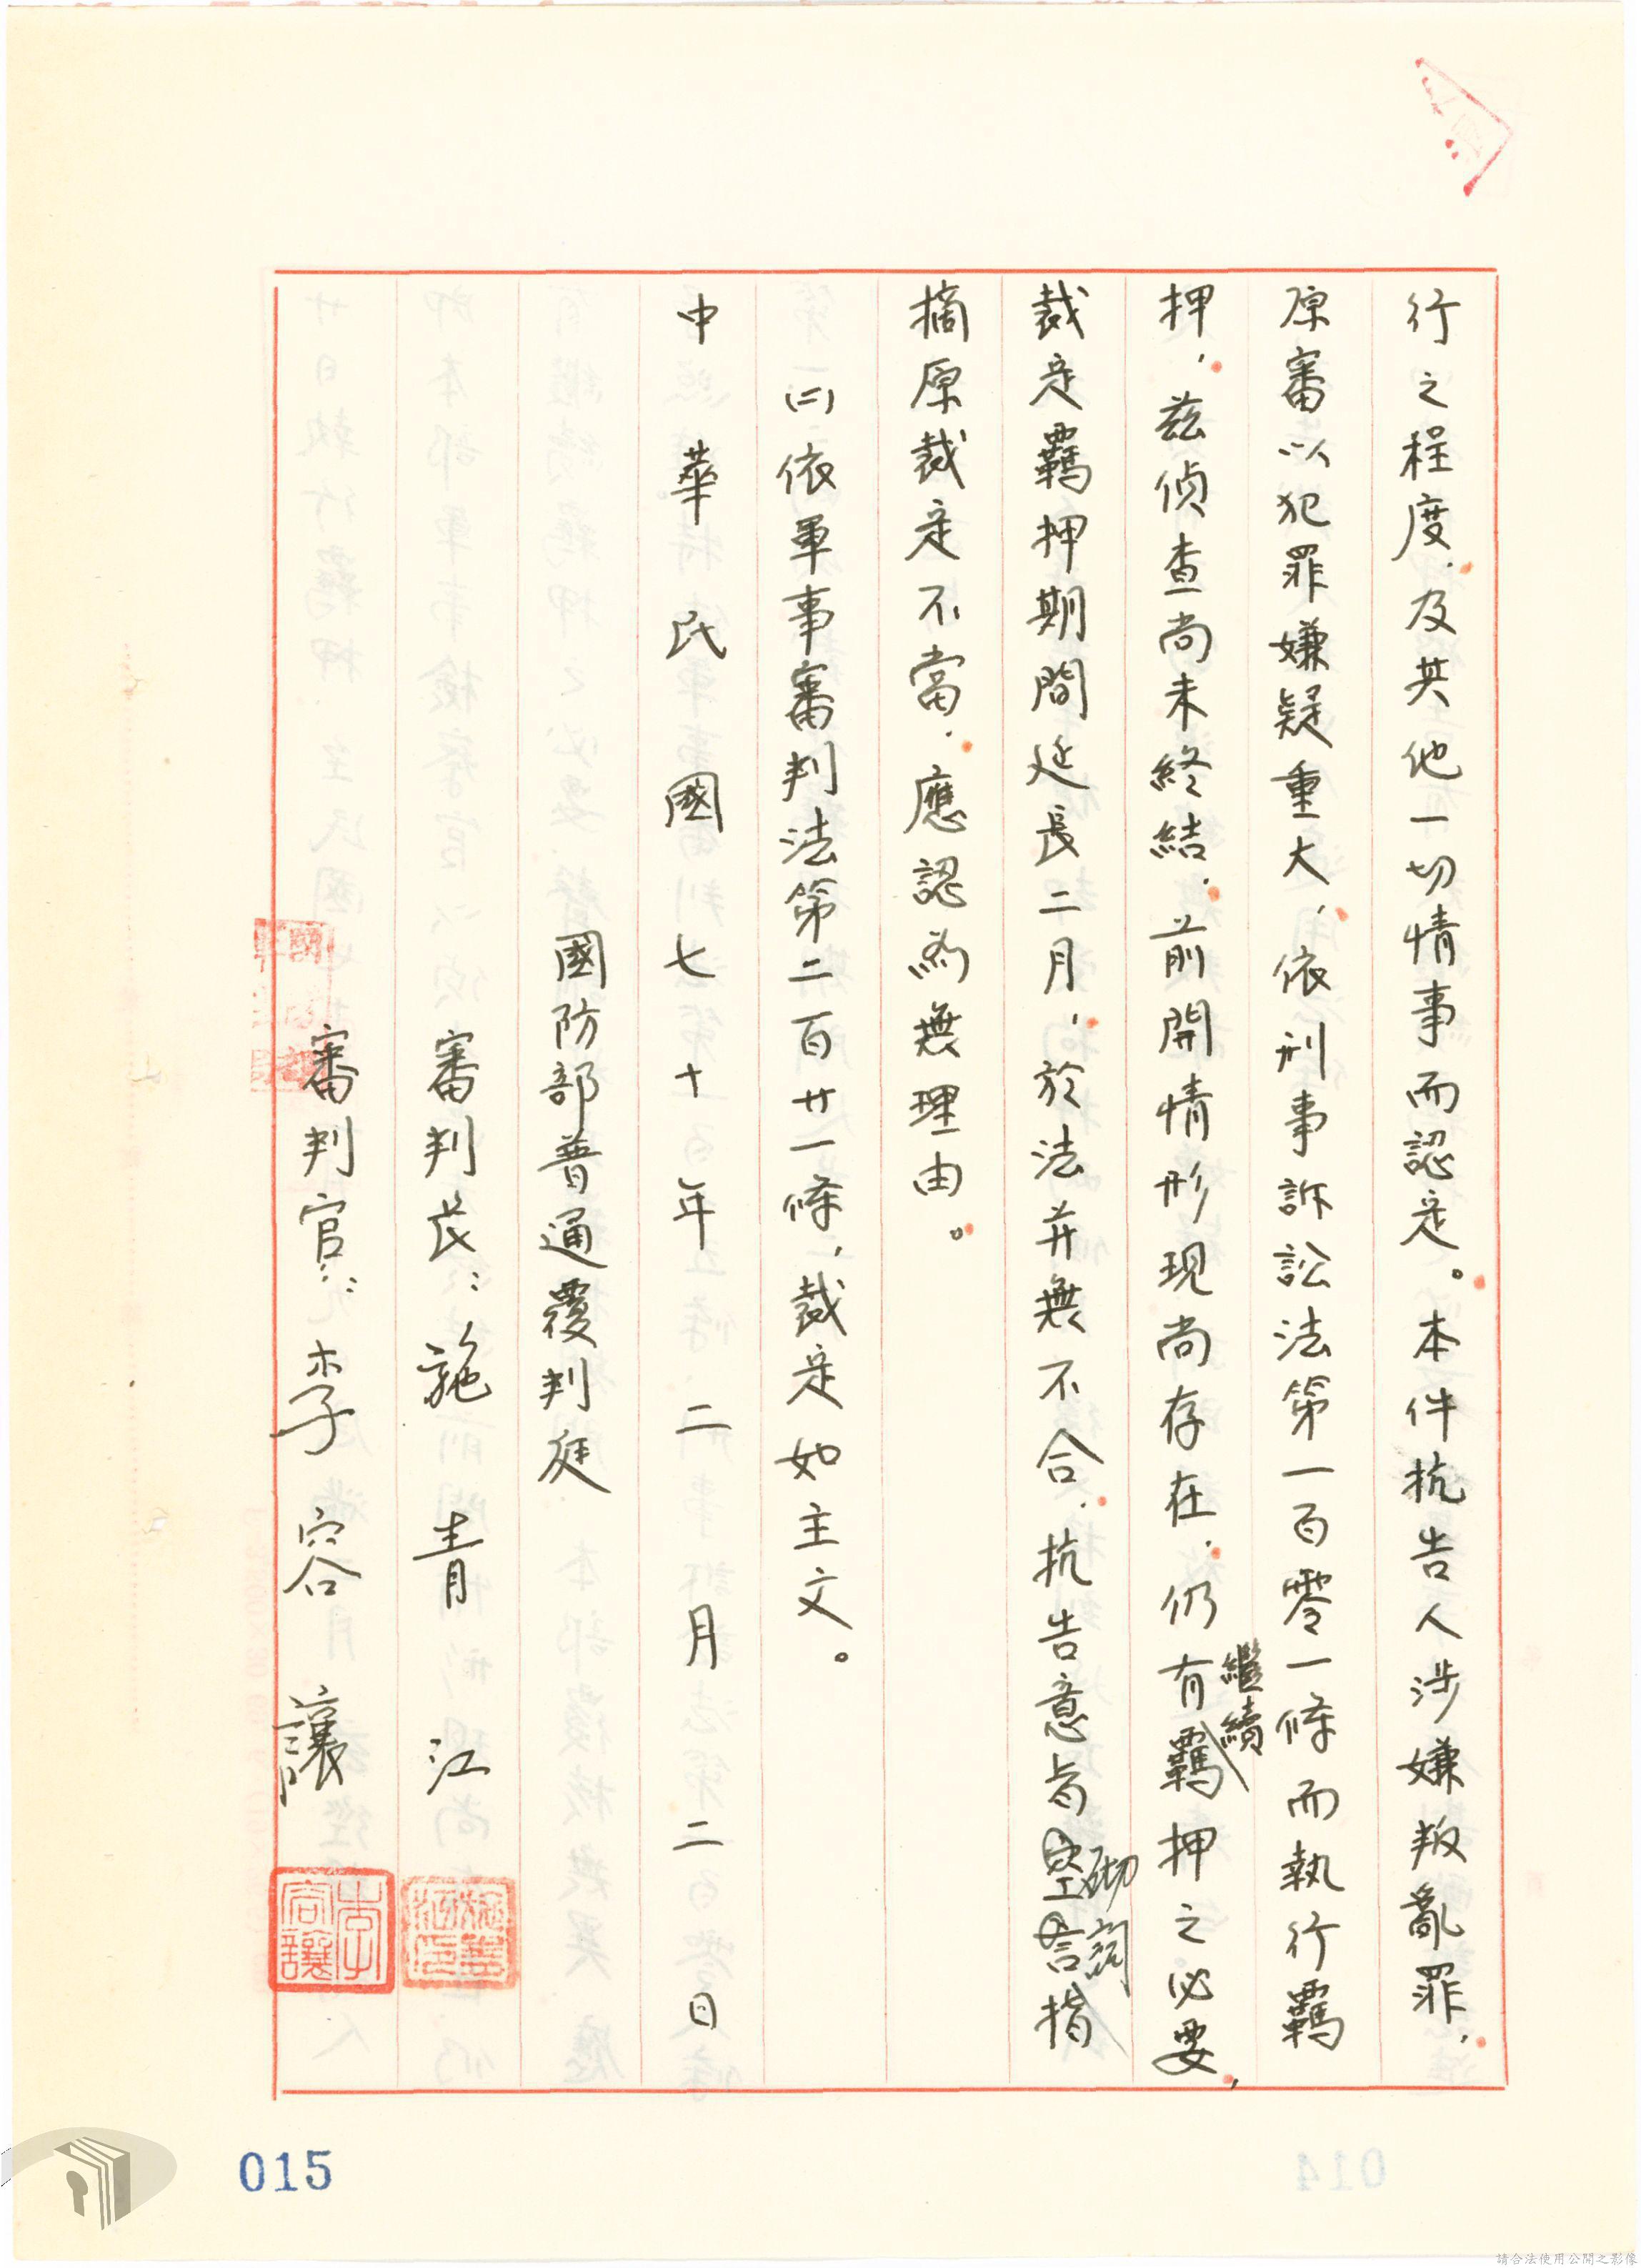 行之程度，及其他一切情事而認定。本件抗告人涉嫌叛亂罪，
原審以犯罪嫌疑重大，依刑事訴訟法第一百零一條而執行羈
押，茲偵查尚未終結，前開情形現尚存在，仍有繼續羈押之必要，
裁定羈押期間延長二月，於法并無不合，抗告意旨砌詞指
摘原裁定不當，應認為無理由。
㈡依軍事審判法第二百廿一條，裁定如主文。
中華民國七十年二月二日
國防部普通覆判庭
審判長：施青江
審判官：李容讓
李容讓
015
014
請合法使用公開之影像